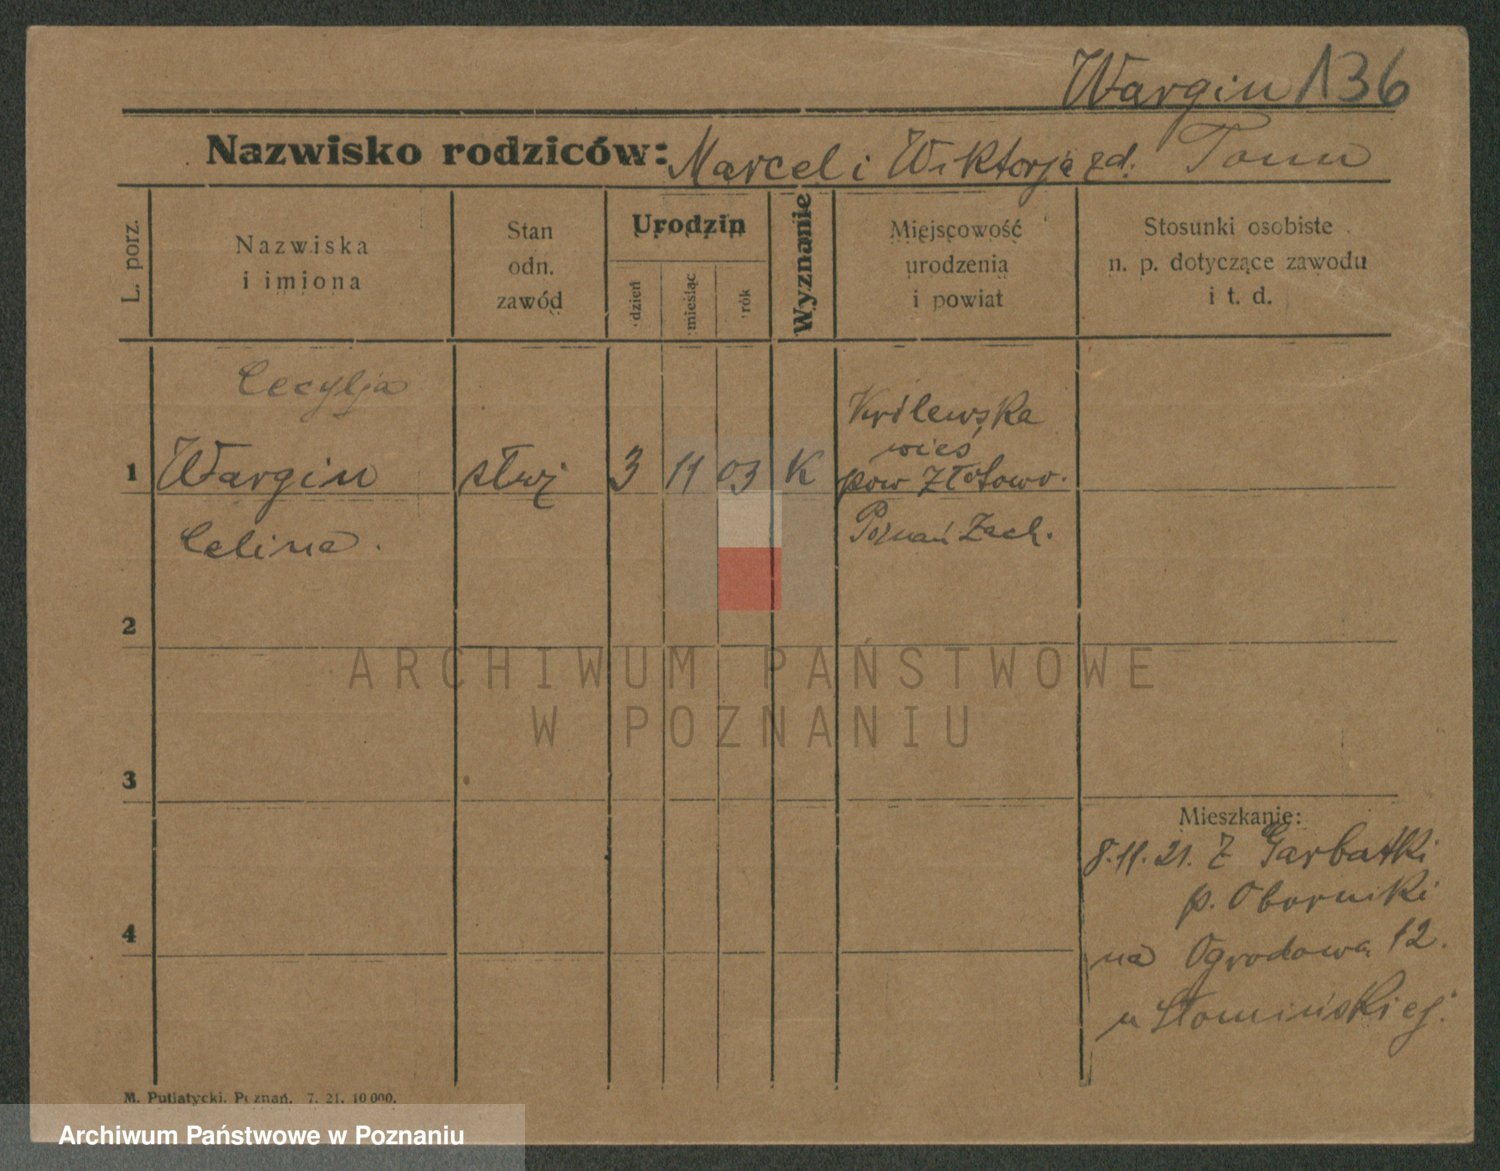 Wargin 136
Nazwisko rodziców: Marcel i Wiktorja zd. Tomm
L. porz.
Nazwiska
i imiona
Stan
odn.
zawód
Urodzin
dzień
miesiąc
rok
Wyznanie
Miejscowość
urodzenia
i powiat
Stosunki osobiste
n. p. dotyczące zawodu
i t. d.
Cecylja
1 Wargin służ 3 11 03 K
Celina.
Królewska
wieś
pow Złotowo.
Poznań Zach.
2
3
4
Mieszkanie:
8.11.21. Z Garbatki
p. Oborniki
na Ogrodowa 12.
u Słomińskiej.
ARCHIWUM PAŃSTWOWE
W POZNANIU
M. Putiatycki. Poznań. 7. 21. 10 000.
Archiwum Państwowe w Poznaniu